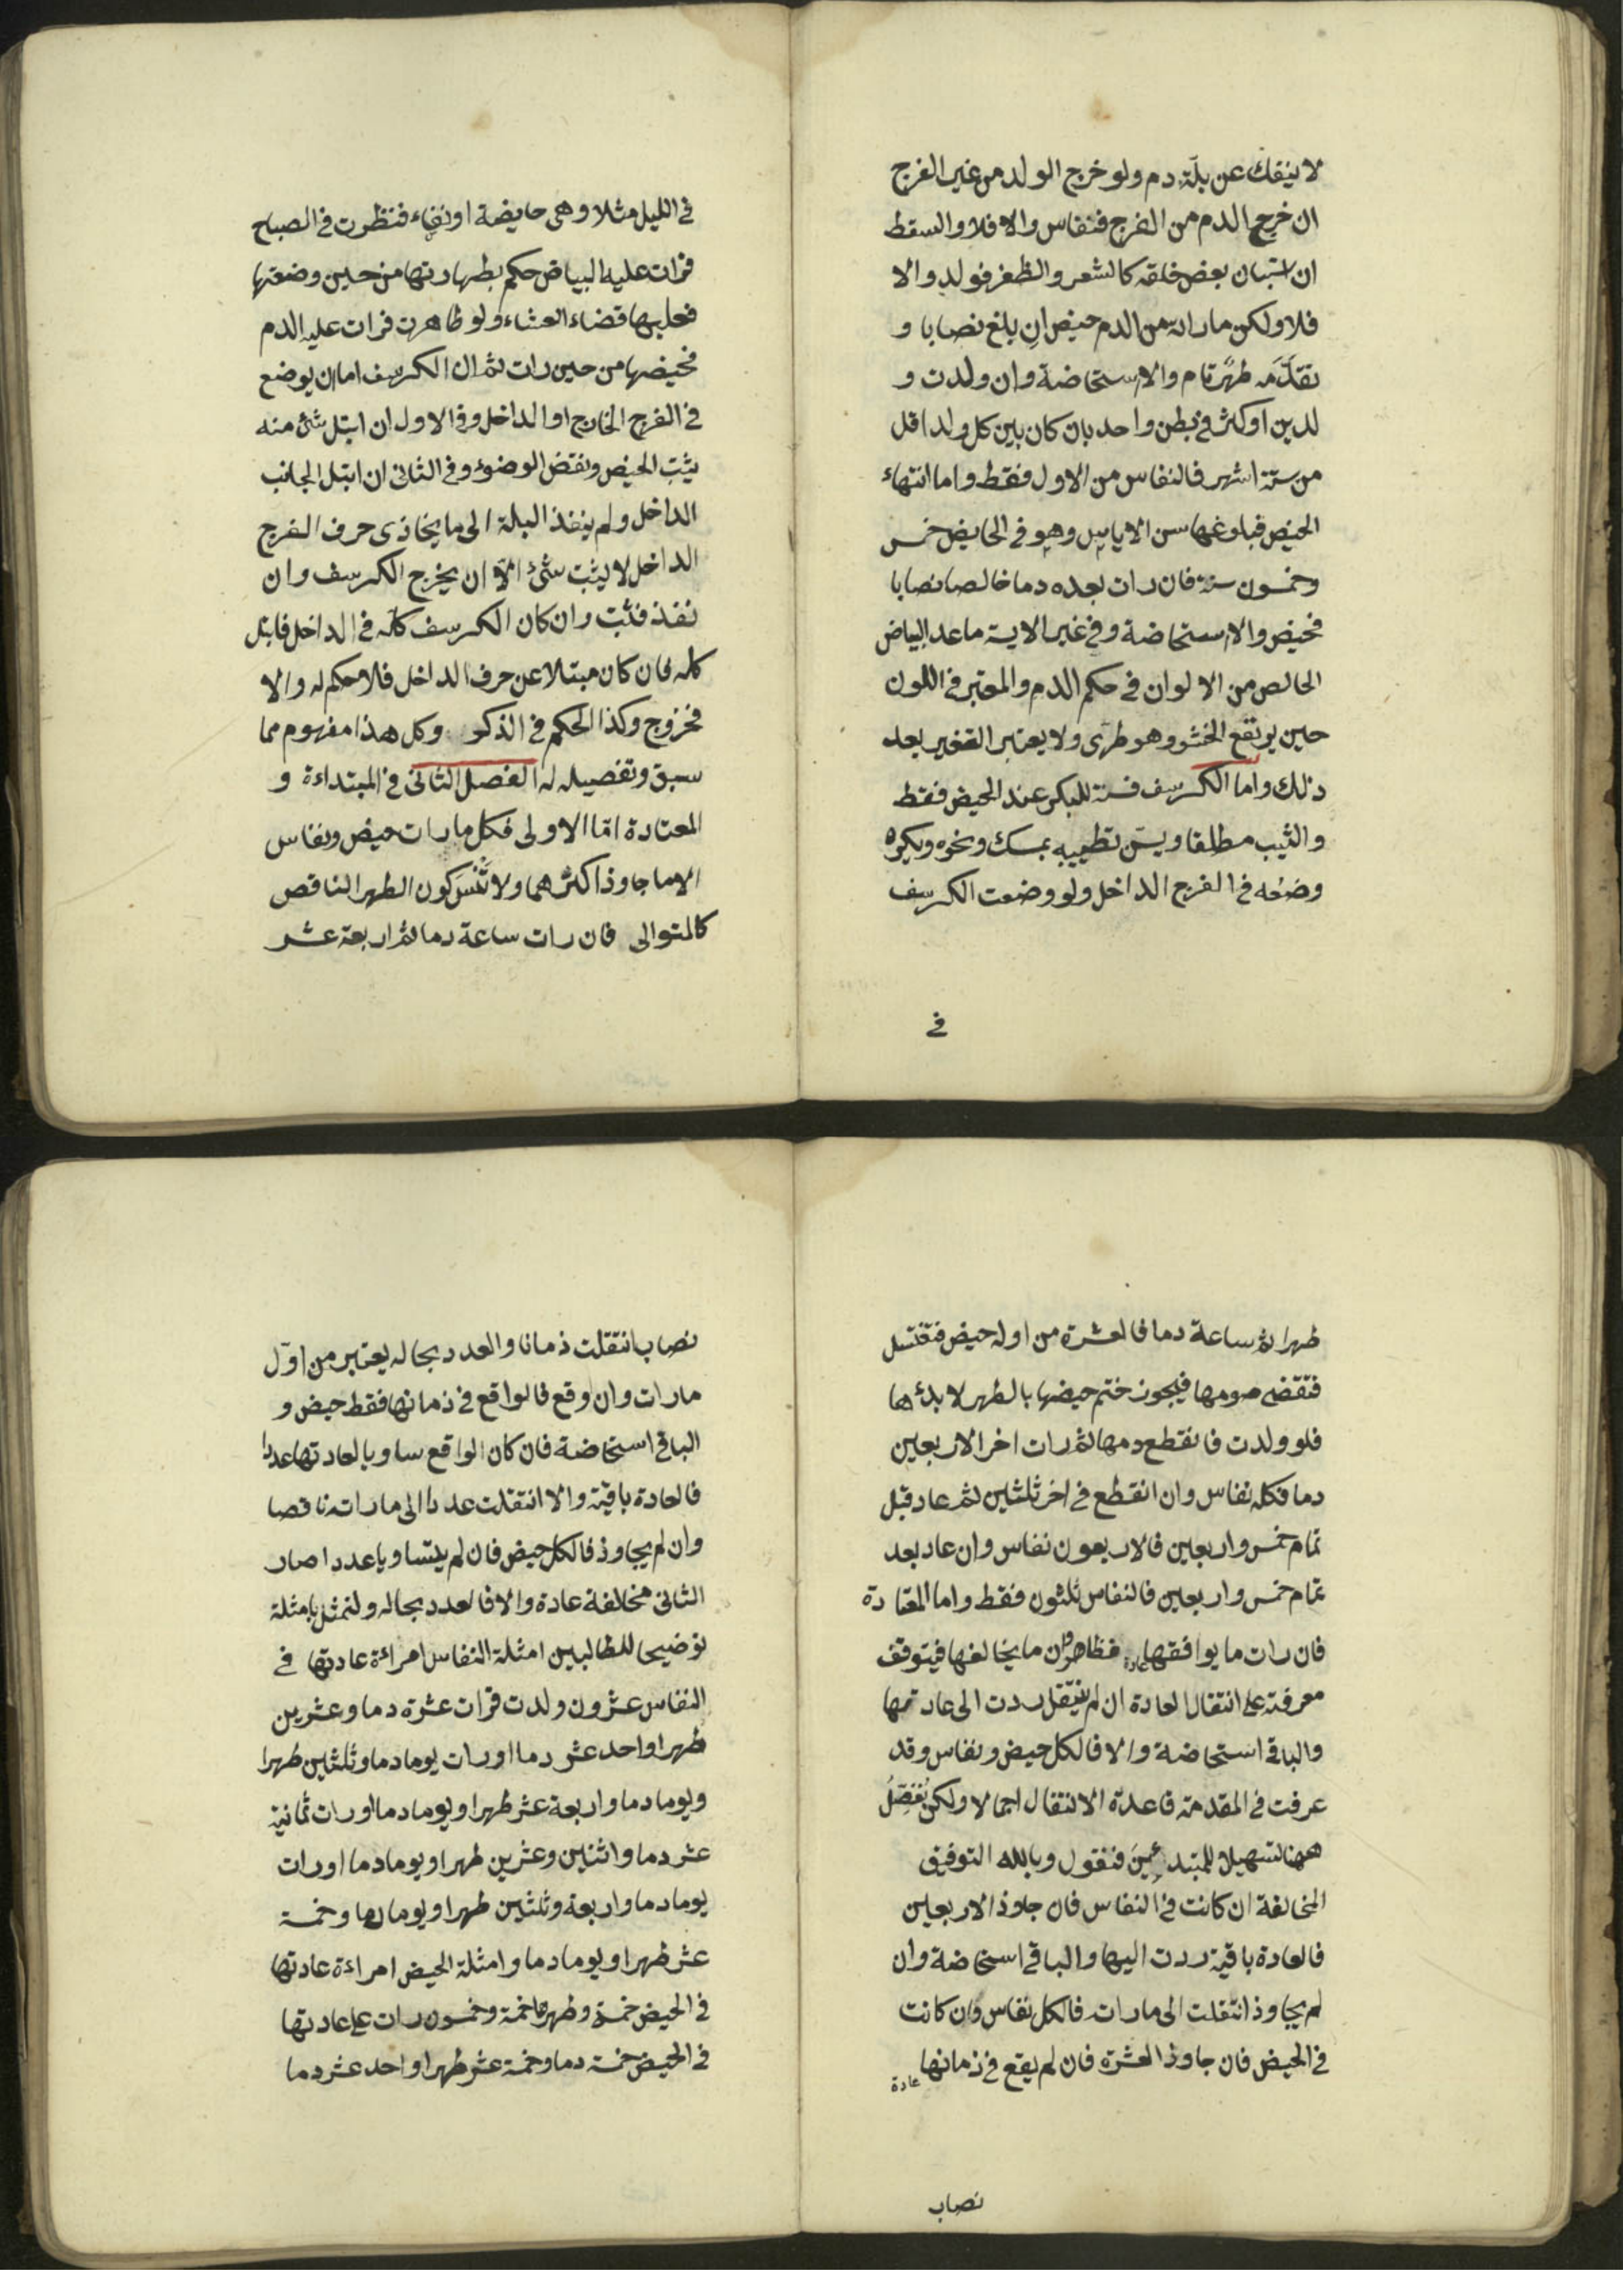 لا ينفك عن بلّة دم ولو خرج الولد من غير الفرج
ان خرج الدم من الفرج فنفاس والا فلا والسقط
ان استبان بعض خلقه كالشعر والظفر فولد والا
فلا ولكن ما راته من الدم حيض ان بلغ نصابا و
تقدّمه طهرٌ تام والا استحاضة وان ولدت و
لدين او كثر فى بطن واحد بان كان بين كل ولد اقل
من ستة اشهر فالنفاس من الاول فقط واما انتهاء
الحيض فبلوغها سن الاياس وهو فى الحايض خمس
وخمسون سنة فان رات بعده دما خالصا نصابا
فحيض والا استحاضة وفى غير الايسة ماعد البياض
الخالص من الالوان فى حكم الدم والمعتبر فى اللون
حين يرتفع الحشو وهو طرى ولا يعتبر التغير بعد
ذلك واما الكرسف فسنة للبكر عند الحيض فقط
والثيب مطلقا ويسن تطييبه بمسك ونحوه ويكره
وضعه فى الفرج الداخل ولو وضعت الكرسف
فى
فى الليل مثلا وهى حايضة او نفساء فنظرت فى الصباح
فرات عليه البياض حكم بطهارتها من حين وضعتها
فعليها قضاء العشاء ولو طاهرت فرات عليه الدم
فحيضها من حين رات ثم ان الكرسف اما ان يوضع
فى الفرج الخارج او الداخل وفى الاول ان ابتل شئ منه
يثبت الحيض ونقض الوضوء وفى الثانى ان ابتل الجانب
الداخل ولم ينفذ البلة الى ما يحاذى حرف الفرج
الداخل لا يثبت شئ الا ان يخرج الكرسف وان
نفذ فثبت وان كان الكرسف كله فى الداخل فابتل
كله فان كان مبتلا عن حرف الداخل فلا حكم له والا
فخروج وكذا الحكم فى الذكر وكل هذا مفهوم مما
سبق وتفصيله له الفصل الثانى فى المبتداءة و
المعتادة امّا الاولى فكل ما رات حيض ونفاس
الا ما جاوز اكثرهما ولا تَنْسَ كون الطهر الناقص
كالمتوالى فان رات ساعة دما ثم اربعة عشر
طهرا ثم ساعة دما فالعشرة من اوله حيض فتغتسل
فتقضى صومها فيجوز ختم حيضها بالطهر لا بدئها
فلو ولدت فانقطع دمها ثم رات اخر الاربعين
دما فكله نفاس وان انقطع فى اخر ثلثين ثم عاد قبل
تمام خمس واربعين فالاربعون نفاس وان عاد بعد
تمام خمس واربعين فالنفاس ثلثون فقط واما المعتادة
فان رات ما يوافقها عادة فظاهر وان ما يخالفها فيتوقف
معرفته على انتقال العادة ان لم ينتقل ردت الى عادتها
والباقى استحاضة والا فالكل حيض ونفاس وقد
عرفت فى المقدمة قاعدة الانتقال اجمالا ولكن نُفَصِّلُ
ههنا تسهيلا للمبتدئين فنقول وبالله التوفيق
المخالفة ان كانت فى النفاس فان جاوز الاربعين
فالعادة باقية ردت اليها والباقى استحاضة وان
لم يجاوز انتقلت الى ما رات فالكل نفاس وان كانت
فى الحيض فان جاوز العشرة فان لم يقع فى زمانها عادة
نصاب
نصاب انتقلت زمانا والعدد بحاله يعتبر من اوّل
ما رات وان وقع فالواقع فى زمانها فقط حيض و
الباقى استحاضة فان كان الواقع ساويا لعادتها عددا
فالعادة باقية والا انتقلت عددا الى ما راته ناقصا
وان لم يجاوز فالكل حيض فان لم يتساويا عددا صار
الثانى مخالفة عادة والا فالعدد بحاله ولنمثل بامثلة
توضيحا للطالبين امثلة النفاس امراءة عادتها فى
النفاس عشرون ولدت فرات عشرة دما وعشرين
طهرا واحد عشر دما او رات يوما دما وثلثين طهرا
ويوما دما واربعة عشر طهرا ويوما دما او رات ثمانية
عشر دما واثنين وعشرين طهرا ويوما دما او رات
يوما دما واربعة وثلثين طهرا ويوما دما وخمسة
عشر طهرا ويوما دما وامثلة الحيض امراءة عادتها
فى الحيض خمسة وطهرها خمسة وخمسون رات على عادتها
فى الحيض خمسة دما وخمسة عشر طهرا واحد عشر دما